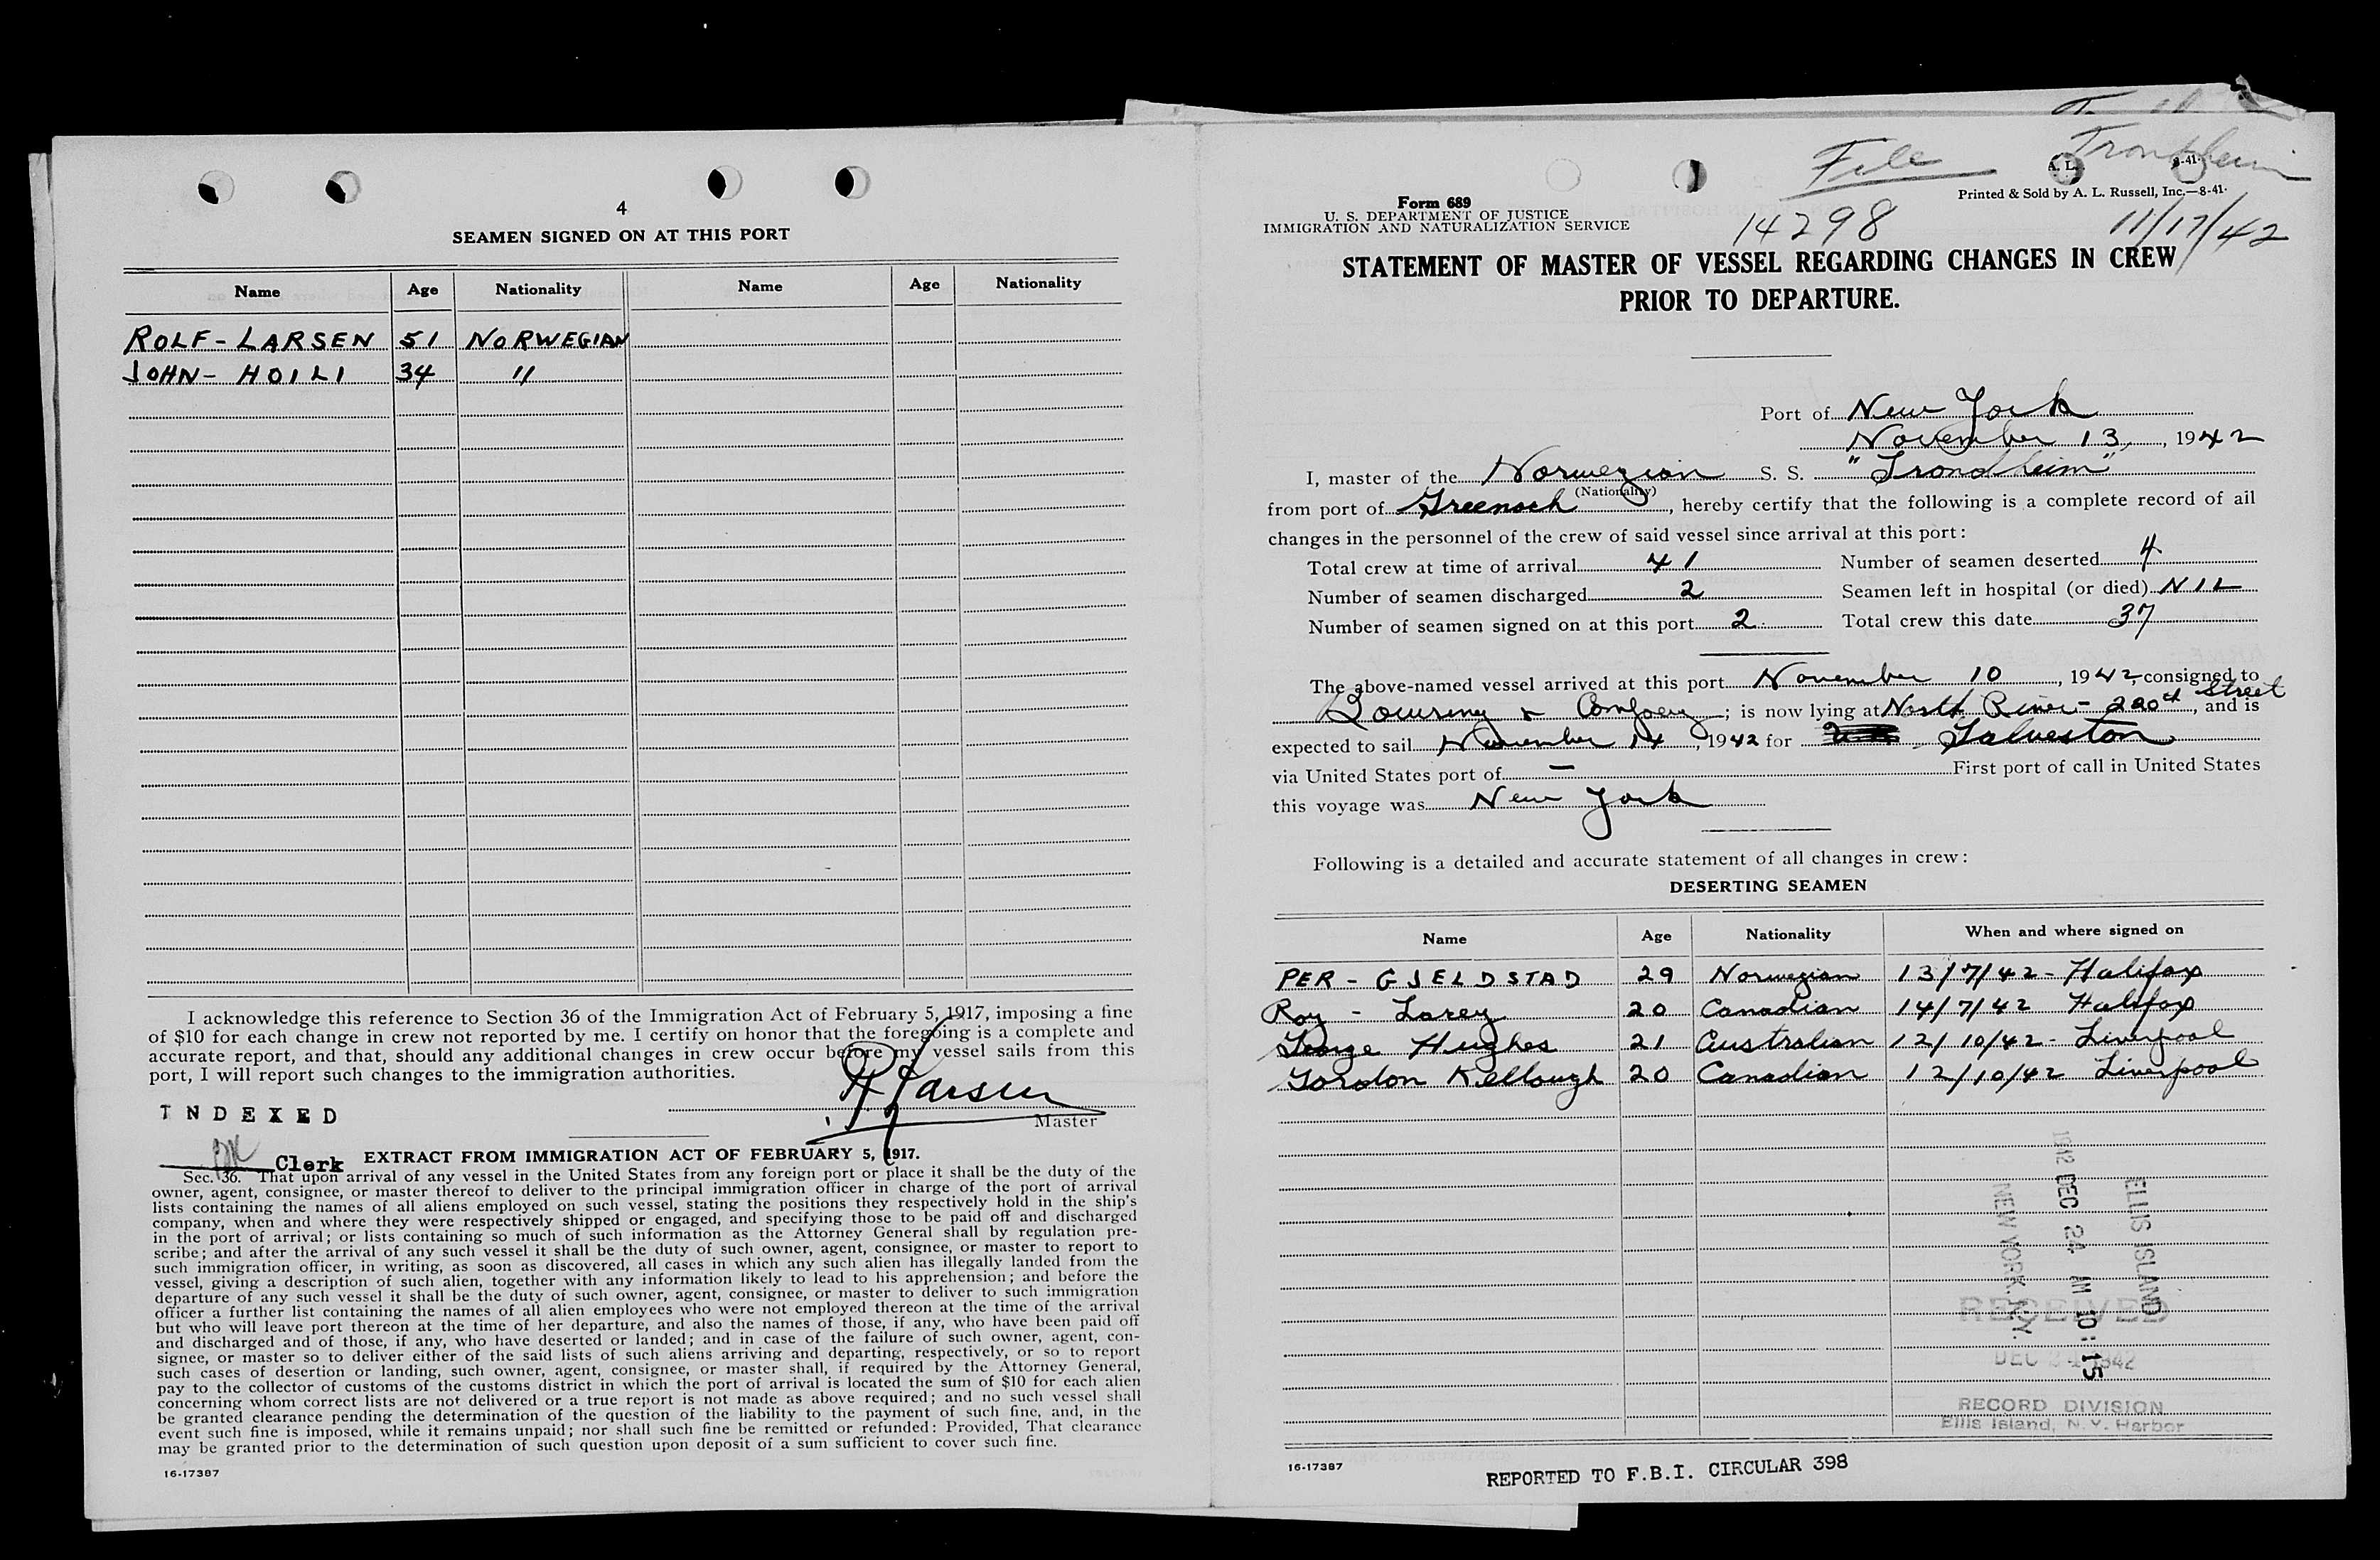 4
SEAMEN SIGNED ON AT THIS PORT
Name Age Nationality Name Age Nationality
ROLF - LARSEN 51 NORWEGIAN
JOHN - HOILI 34 "
I acknowledge this reference to Section 36 of the Immigration Act of February 5, 1917, imposing a fine
of $10 for each change in crew not reported by me. I certify on honor that the foregoing is a complete and
accurate report, and that, should any additional changes in crew occur before my vessel sails from this
port, I will report such changes to the immigration authorities.
Larsen
INDEXED
Master
Clerk
EXTRACT FROM IMMIGRATION ACT OF FEBRUARY 5, 1917.
Sec. 36. That upon arrival of any vessel in the United States from any foreign port or place it shall be the duty of the
owner, agent, consignee, or master thereof to deliver to the principal immigration officer in charge of the port of arrival
lists containing the names of all aliens employed on such vessel, stating the positions they respectively hold in the ship's
company, when and where they were respectively shipped or engaged, and specifying those to be paid off and discharged
in the port of arrival; or lists containing so much of such information as the Attorney General shall by regulation pre-
scribe; and after the arrival of any such vessel it shall be the duty of such owner, agent, consignee, or master to report to
such immigration officer, in writing, as soon as discovered, all cases in which any such alien has illegally landed from the
vessel, giving a description of such alien, together with any information likely to lead to his apprehension; and before the
departure of any such vessel it shall be the duty of such owner, agent, consignee, or master to deliver to such immigration
officer a further list containing the names of all alien employees who were not employed thereon at the time of the arrival
but who will leave port thereon at the time of her departure, and also the names of those, if any, who have been paid off
and discharged and of those, if any, who have deserted or landed; and in case of the failure of such owner, agent, con-
signee, or master so to deliver either of the said lists of such aliens arriving and departing, respectively, or so to report
such cases of desertion or landing, such owner, agent, consignee, or master shall, if required by the Attorney General,
pay to the collector of customs of the customs district in which the port of arrival is located the sum of $10 for each alien
concerning whom correct lists are not delivered or a true report is not made as above required; and no such vessel shall
be granted clearance pending the determination of the question of the liability to the payment of such fine, and, in the
event such fine is imposed, while it remains unpaid; nor shall such fine be remitted or refunded: Provided, That clearance
may be granted prior to the determination of such question upon deposit of a sum sufficient to cover such fine.
16-17387
File Trondheim
Printed & Sold by A. L. Russell, Inc.—8-41.
Form 689
U. S. DEPARTMENT OF JUSTICE
IMMIGRATION AND NATURALIZATION SERVICE
14298 11/17/42
STATEMENT OF MASTER OF VESSEL REGARDING CHANGES IN CREW
PRIOR TO DEPARTURE.
Port of New York
November 13, 1942
I, master of the Norwegian S. S. "Trondheim"
(Nationality)
from port of Greenock, hereby certify that the following is a complete record of all
changes in the personnel of the crew of said vessel since arrival at this port:
Total crew at time of arrival 41 Number of seamen deserted 4
Number of seamen discharged 2 Seamen left in hospital (or died) NIL
Number of seamen signed on at this port 2 Total crew this date 37
The above-named vessel arrived at this port November 10, 1942, consigned to
Bowring & Company; is now lying at North River - 220th Street, and is
expected to sail November 14, 1942 for Galveston
via United States port of — First port of call in United States
this voyage was New York
Following is a detailed and accurate statement of all changes in crew:
DESERTING SEAMEN
Name Age Nationality When and where signed on
PER - GJELDSTAD 29 Norwegian 13/7/42 - Halifax
Roy - Larey 20 Canadian 14/7/42 Halifax
George Hughes 21 Australian 12/10/42 - Liverpool
Gordon Kellough 20 Canadian 12/10/42 Liverpool
ELLIS ISLAND
1942 DEC 24 AM 10:15
NEW YORK, N.Y.
RECEIVED
DEC 24 1942
RECORD DIVISION
Ellis Island, N. Y. Harbor
16-17387
REPORTED TO F.B.I. CIRCULAR 398